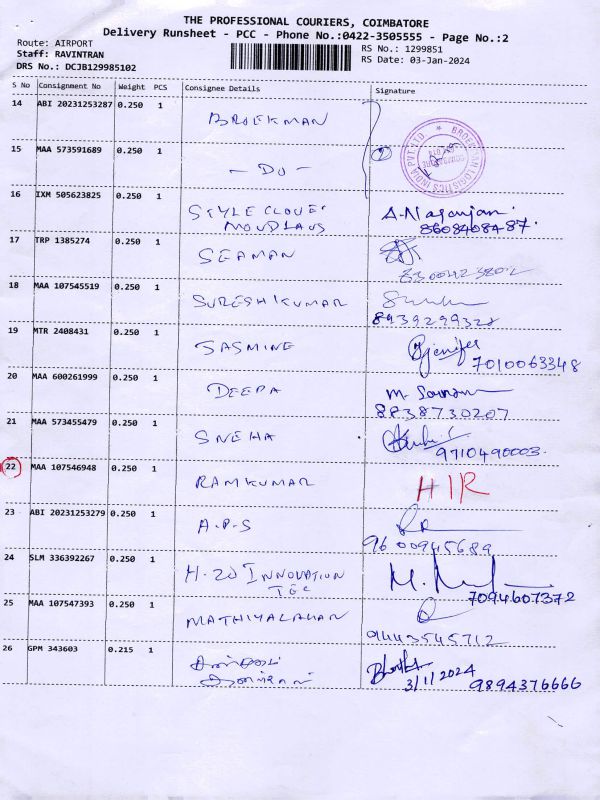 THE PROFESSIONAL COURIERS, COIMBATORE
Delivery Runsheet - PCC - Phone No.:0422-3505555 - Page No.:2
Route: AIRPORT
RS No.: 1299851
Staff: RAVINTRAN
RS Date: 03-Jan-2024
DRS No.: DCJB129985102
S No Consignment No Weight PCS Consignee Details Signature
14 ABI 20231253287 0.250 1 BROEKMAN
15 MAA 573591689 0.250 1 - DO -
16 IXM 505623825 0.250 1 STYLE CLOVE A. Nagarajan
8608408487.
17 TRP 1385274 0.250 1 SEAMAN
18 MAA 107545519 0.250 1 SURESH KUMAR
8939299328
19 MTR 2408431 0.250 1 JASMINE Jenifer
7010063348
20 MAA 600261999 0.250 1 DEEPA
8838730207
21 MAA 573455479 0.250 1 SNEHA
9710490003.
22 MAA 107546948 0.250 1 RAMKUMAR HIR
23 ABI 20231253279 0.250 1 A.P.S
9600945689
24 SLM 336392267 0.250 1 H-20 INNOVATION
7094607372
25 MAA 107547393 0.250 1 MATHIYALAHAN
9443545712
26 GPM 343603 0.215 1
3/11/2024 9894376666